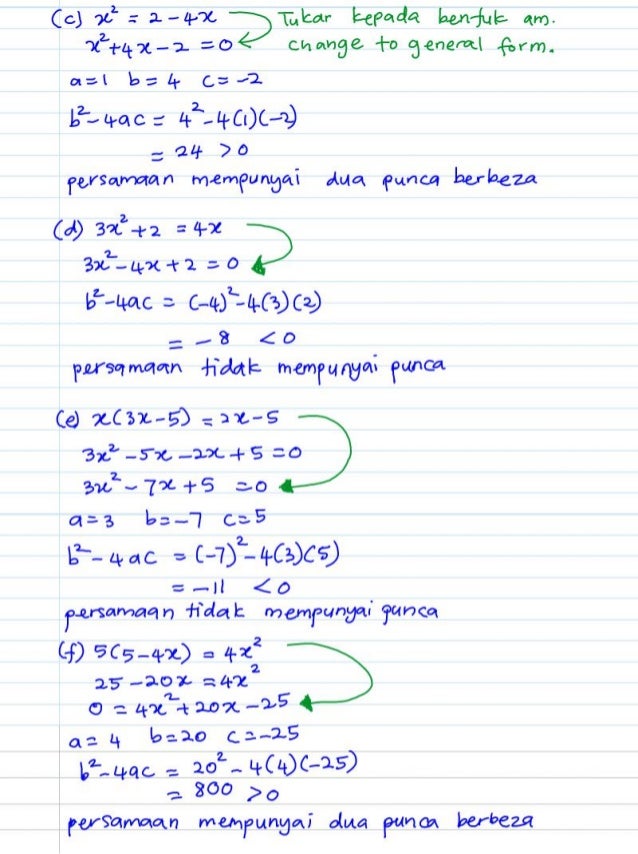 (c) x² = 2 - 4x Tukar kepada bentuk am.
x² + 4x - 2 = 0 change to general form.
a = 1 b = 4 c = -2
b² - 4ac = 4² - 4(1)(-2)
= 24 > 0
persamaan mempunyai dua punca berbeza
(d) 3x² + 2 = 4x
3x² - 4x + 2 = 0
b² - 4ac = (-4)² - 4(3)(2)
= -8 < 0
persamaan tidak mempunyai punca
(e) x(3x - 5) = 2x - 5
3x² - 5x - 2x + 5 = 0
3x² - 7x + 5 = 0
a = 3 b = -7 c = 5
b² - 4ac = (-7)² - 4(3)(5)
= -11 < 0
persamaan tidak mempunyai punca
(f) 5(5 - 4x) = 4x²
25 - 20x = 4x²
0 = 4x² + 20x - 25
a = 4 b = 20 c = -25
b² - 4ac = 20² - 4(4)(-25)
= 800 > 0
persamaan mempunyai dua punca berbeza